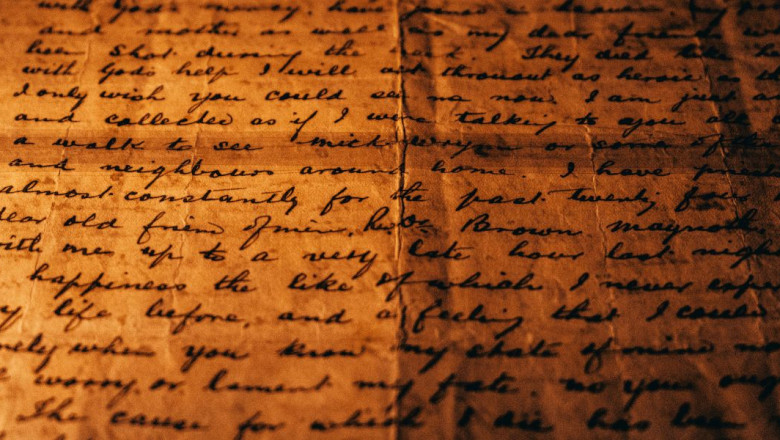 with God's mercy, have
and mother as well as my dear friends
been shot during the They died like
with Gods help I will act throuout as heroic as
I only wish you could see me now. I am just as
and collected as if I were talking to you all
a walk to see Mick or some of
and neighbours around home. I have
almost constantly for the past twenty four
dear old friend of mine, Brown
with me up to a very late hour last night
happiness the like of which I never
life before, and a feeling that I could
when you know my state of mind
worry or lament my fate. you
The cause for which I die has been